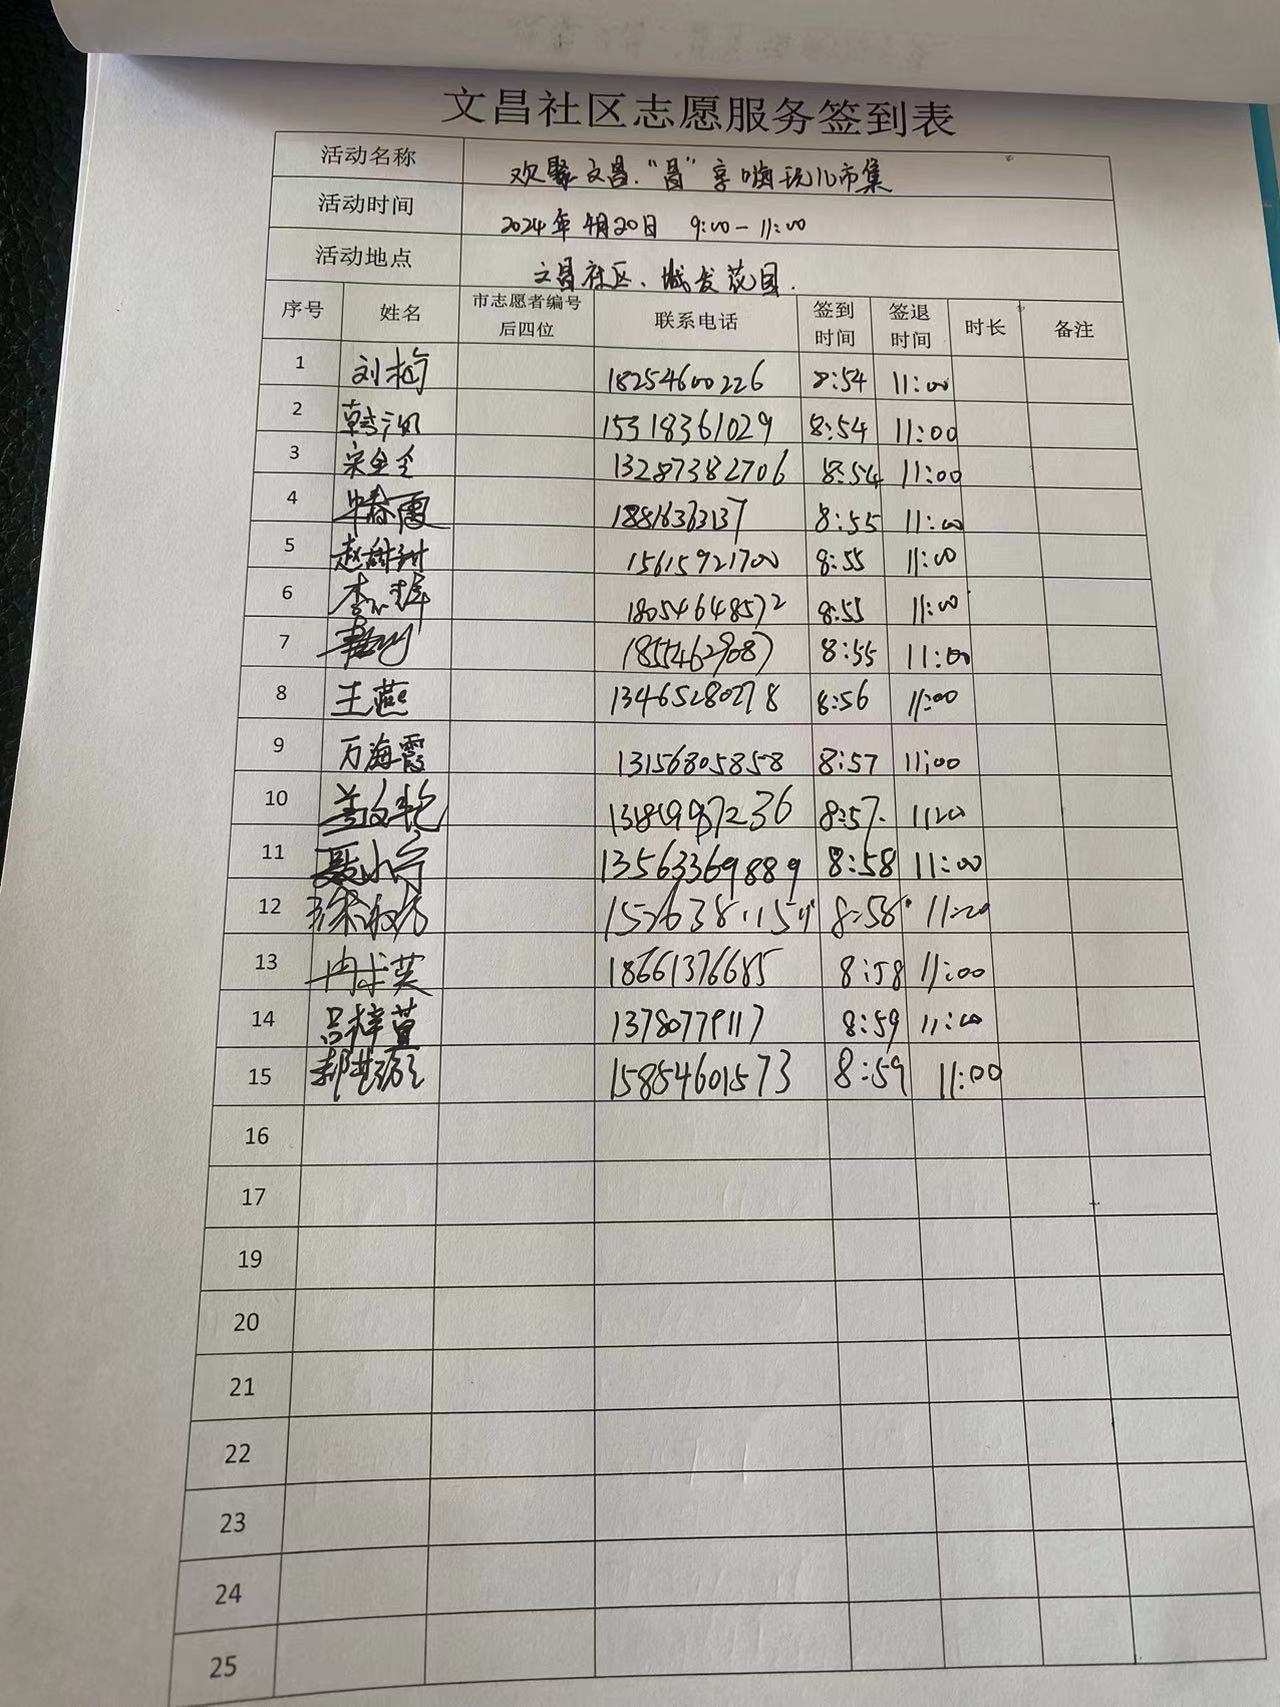 文昌社区志愿服务签到表
活动名称 欢聚文昌.“昌”享嗨玩儿市集
活动时间 2024年4月20日 9:00-11:00
活动地点 文昌社区、城发花园.
序号 姓名 市志愿者编号后四位 联系电话 签到时间 签退时间 时长 备注
1 刘梅 18254600226 8:54 11:00
2 15318361029 8:54 11:00
3 宋全全 13287382706 8:54 11:00
4 牟春霞 18816363137 8:55 11:00
5 赵甜甜 15615921700 8:55 11:00
6 18054648572 8:55 11:00
7 8:55 11:00
8 王燕 13465280278 8:56 11:00
9 万海霞 13156805858 8:57 11:00
10 盖文艳 8:57. 1120
11 聂小宁 13563369889 8:58 11:00
12 8:58
13 冉求英 18661376685 8:58 11:00
14 吕梓萱 13780779117 8:59 11:00
15 15854601573 8:59 11:00
16
17
19
20
21
22
23
24
25